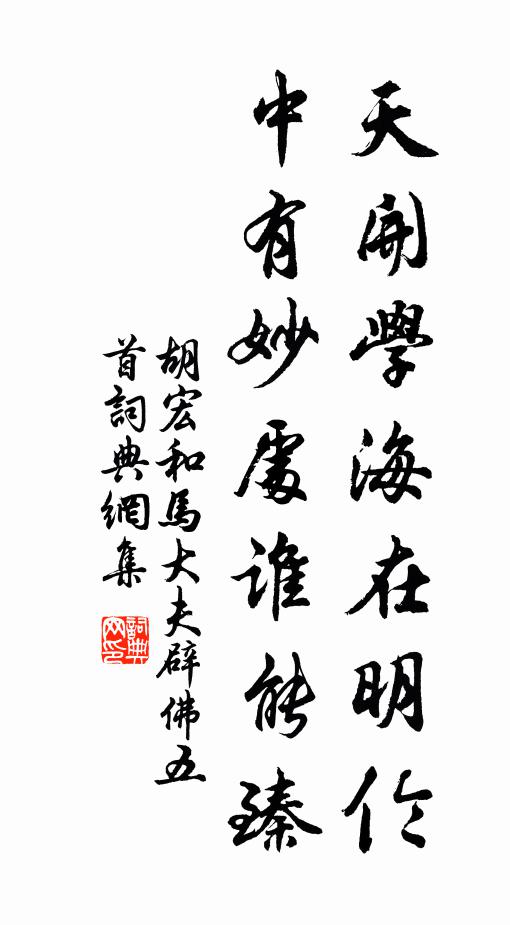 天開學海在明倫
中有妙處誰能臻
胡宏和馬大夫辟佛五
首詞典網集
詞典
网印